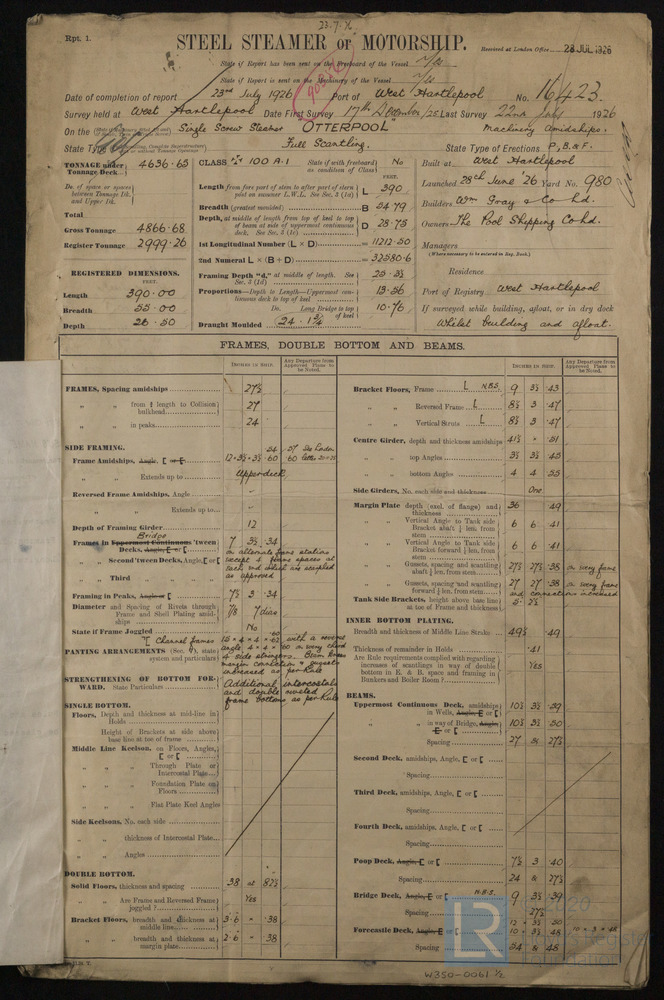 23.7.26
Rpt. 1.
STEEL STEAMER or MOTORSHIP.
Received at London Office 28 JUL 1926
State if Report has been sent on the Freeboard of the Vessel
State if Report is sent on the Machinery of the Vessel
Date of completion of report 23rd July 1926 Port of West Hartlepool No. 16423.
Survey held at West Hartlepool Date First Survey 17th December /25 Last Survey 22nd July 1926
On the Single Screw Steamer "OTTERPOOL" Machinery Amidships.
State Type Full Scantling. State Type of Erections P, B. & F.
TONNAGE under Tonnage Deck 4636.65
Do. of space or spaces between Tonnage Dk. and Upper Dk.
Total
Gross Tonnage 4866.68
Register Tonnage 2999.26
REGISTERED DIMENSIONS.
FEET.
Length 390.00
Breadth 55.00
Depth 26.50
CLASS 100 A.1 State if with freeboard as condition of Class No
Length from fore part of stem to after part of stern post on summer L.W.L. See Sec. 3 (1a) L 390
Breadth (greatest moulded) B 54.79
Depth, at middle of length from top of keel to top of beam at side of uppermost continuous deck. See Sec. 3 (1c) D 28.75
1st Longitudinal Number (L × D) = 11212.50
2nd Numeral L × (B + D) = 32580.6
Framing Depth "d," at middle of length. See Sec. 3 (1d)
Proportions—Depth to Length—Uppermost continuous deck to top of keel 13.56
Do. Long Bridge to top of keel 10.76
Draught Moulded 24.1¾
Built at West Hartlepool
Launched 28th June '26 Yard No. 980
Builders Wm Gray & Co Ld.
Owners The Pool Shipping Co Ld.
Managers
(Where necessary to be entered in Reg. Book.)
Residence
Port of Registry West Hartlepool
If surveyed while building, afloat, or in dry dock
Whilst building and afloat.
FRAMES, DOUBLE BOTTOM AND BEAMS.
INCHES IN SHIP.
Any Departure from Approved Plans to be Noted.
FRAMES, Spacing amidships 27½
" " from ¾ length to Collision bulkhead 27
" " in peaks 24
SIDE FRAMING.
Frame Amidships, Angle, [ or E
" " Extends up to Upper deck
Reversed Frame Amidships, Angle
" " Extends up to
Depth of Framing Girder 12
Frames in Uppermost Continuous 'tween Decks, Angle, E or [ Bridge 7 3½ .34
on alternate frame stations
" " Second 'tween Decks, Angle, E or [
" " Third " "
as approved
Framing in Peaks, Angle or [ 7½ 3 .34
Diameter and Spacing of Rivets through Frame and Shell Plating amidships 7/8 7 dias
State if Frame Joggled No
PANTING ARRANGEMENTS (Sec. 7), state system and particulars
Channel frames
with a reverse
4 side stringers. Beam knees
increased as per Rule
STRENGTHENING OF BOTTOM FORWARD. State Particulars
Additional intercostals
and double riveted
frame bottoms as per Rule
SINGLE BOTTOM.
Floors, Depth and thickness at mid-line in Holds
Height of Brackets at side above base line at toe of frame
Middle Line Keelson, on Floors, Angles, [ or E
" " Through Plate or Intercostal Plate
" " Foundation Plate on Floors
" " Flat Plate Keel Angles
Side Keelsons, No. each side
" " thickness of Intercostal Plate
" " Angles
DOUBLE BOTTOM.
Solid Floors, thickness and spacing .38 at 82½
" " Are Frame and Reversed Frame joggled? Yes
Bracket Floors, breadth and thickness at middle line 3-6 × .38
" " breadth and thickness at margin plate 2-6 × .38
INCHES IN SHIP.
Any Departure from Approved Plans to be Noted.
Bracket Floors, Frame L N.B.S. 9 3½ .43
" " Reversed Frame L 8½ 3 .47
" " Vertical Struts L 8½ 3 .47
Centre Girder, depth and thickness amidships 41½ × .51
" " top Angles 3½ 3½ .45
" " bottom Angles 4 4 .55
Side Girders, No. each side and thickness One
Margin Plate depth (excl. of flange) and thickness 36 .49
" " Vertical Angle to Tank side Bracket abaft ¼ len. from stem 6 6 .41
" " Vertical Angle to Tank side Bracket forward ¼ len. from stem 6 6 .41
" " Gussets, spacing and scantling abaft ¼ len. from stem 27½ 27½ .38 on every frame
" " Gussets, spacing and scantling forward ¼ len. from stem 27 27 .38 on every frame
and connections increased
Tank Side Brackets, height above base line at toe of Frame and thickness
INNER BOTTOM PLATING.
Breadth and thickness of Middle Line Strake 49½ .49
Thickness of remainder in Holds .41
Are Rule requirements complied with regarding increases of scantlings in way of double bottom in E. & B. space and framing in Bunkers and Boiler Room? Yes
BEAMS.
Uppermost Continuous Deck, amidships in Wells, Angle, E or [ 10½ 3½ .39
" " in way of Bridge, Angle, E or [ 10½ 3½ .50
Spacing 27 & 27½
Second Deck, amidships, Angle, E or [
Spacing
Third Deck, amidships, Angle, E or [
Spacing
Fourth Deck, amidships, Angle, E or [
Spacing
Poop Deck, Angle, E or [ 7½ 3 .40
Spacing 24 & 27½
Bridge Deck, Angle, E or [ N.B.S. 9 3½ .39
Spacing 27½
Forecastle Deck, Angle, E or [ 10 × 3½ .48
Spacing 24 & 48
LR
W350-0061 ½